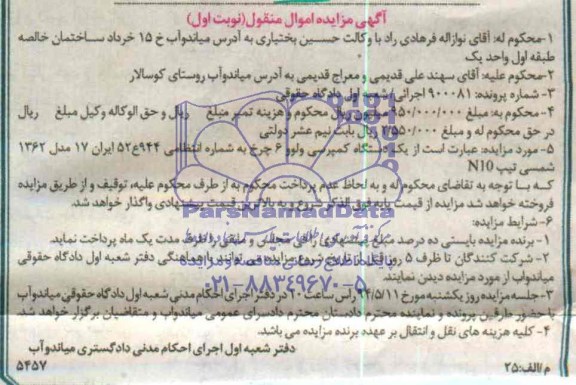 آگهی مزایده اموال منقول(نوبت اول)
۱-محکوم له: آقای نوازاله فرهادی راد با وکالت حسین بختیاری به آدرس میاندوآب خ ۱۵ خرداد ساختمان خالصه
طبقه اول واحد یک
۲-محکوم علیه: آقای سهند علی قدیمی و معراج قدیمی به آدرس میاندوآب روستای کوسالار
۳-شماره پرونده: ۹۰۰۰۸۱ اجرائی/شعبه اول دادگاه حقوقی
۴- محکوم به: مبلغ ۹۵۰/۰۰۰/۰۰۰ میلیون ریال محکوم و هزینه تمبر مبلغ ریال و حق الوکاله وکیل مبلغ ریال
در حق محکوم له و مبلغ ۲/۵۵۰/۰۰۰ ریال بابت نیم عشر دولتی
۵- مورد مزایده: عبارت است از یک دستگاه کمپرسی ولوو ۶ چرخ به شماره انتظامی ۹۴۴ع۵۲ ایران ۱۷ مدل ۱۳۶۲
شمسی تیپ N10
که با توجه به تقاضای محکوم له و به لحاظ عدم پرداخت محکوم به از طرف محکوم علیه، توقیف و از طریق مزایده
فروخته خواهد شد مزایده از قیمت پایه فوق الذکر شروع و به بالاترین قیمت پیشنهادی واگذار خواهد شد.
۶- شرایط مزایده:
۱- برنده مزایده بایستی ده درصد مبلغ پیشنهادی را فی المجلس و مابقی را ظرف مدت یک ماه پرداخت نماید.
۲- شرکت کنندگان تا ظرف ۵ روز قبل از تاریخ شروع مزایده می توانند با هماهنگی دفتر شعبه اول دادگاه حقوقی
میاندوآب از مورد مزایده دیدن نمایند.
۳-جلسه مزایده روز یکشنبه مورخ ۹۴/۵/۱۱ راس ساعت ۲۰ در دفتر اجرای احکام مدنی شعبه اول دادگاه حقوقی میاندوآب
با حضور طرفین پرونده و نماینده محترم دادستان محترم دادسرای عمومی میاندوآب و متقاضیان برگزار خواهد شد.
۴- کلیه هزینه های نقل و انتقال بر عهده برنده مزایده می باشد.
دفتر شعبه اول اجرای احکام مدنی دادگستری میاندوآب
م/الف:۲۵ ۵۴۵۷
ParsNamadData
پایگاه اطلاع رسانی مناقصه و مزایده
۰۲۱-۸۸۳۴۹۶۷۰-۵